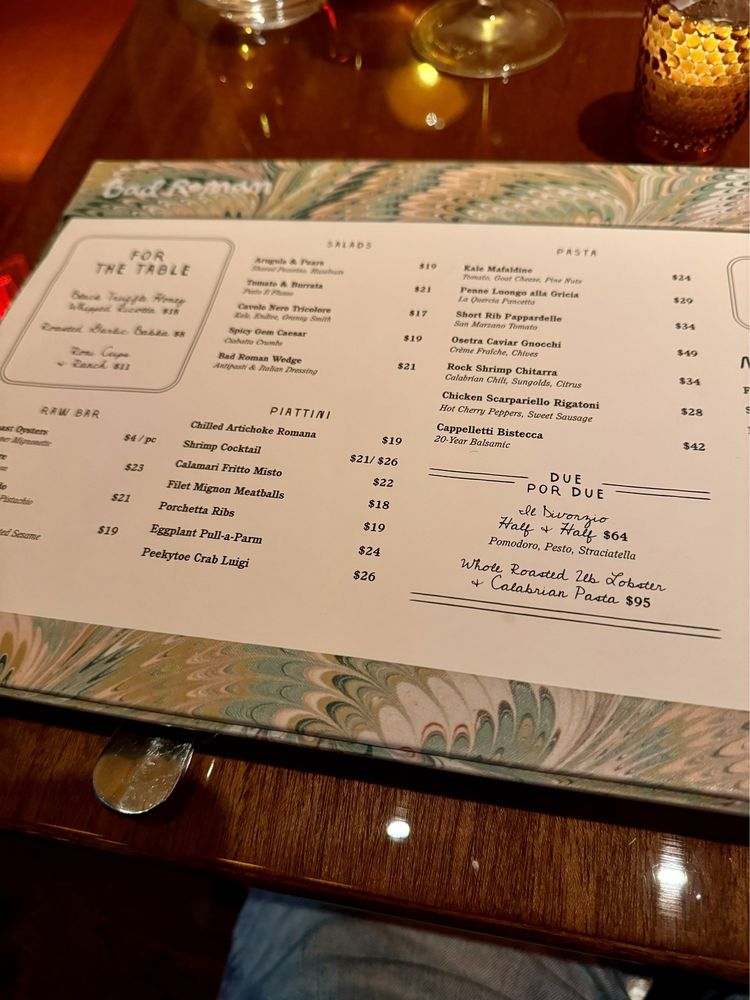 Bad Roman
FOR
THE TABLE
Black Truffle Honey
Whipped Ricotta $18
Roasted Garlic Babka $8
Roni Cups
& Ranch $11
SALADS
Arugula & Pears $19
Shaved Pecorino, Hazelnuts
Tomato & Burrata $21
Pesto
Cavolo Nero Tricolore $17
Kale, Endive, Granny Smith
Spicy Gem Caesar $19
Ciabatta Crumbs
Bad Roman Wedge $21
Antipasti & Italian Dressing
PASTA
Kale Mafaldine $24
Tomato, Goat Cheese, Pine Nuts
Penne Luongo alla Gricia $29
La Quercia Pancetta
Short Rib Pappardelle $34
San Marzano Tomato
Osetra Caviar Gnocchi $49
Crème Fraîche, Chives
Rock Shrimp Chitarra $34
Calabrian Chili, Sungolds, Citrus
Chicken Scarpariello Rigatoni $28
Hot Cherry Peppers, Sweet Sausage
Cappelletti Bistecca $42
20-Year Balsamic
RAW BAR
Oysters $4 / pc
Mignonette
$23
Pistachio $21
Sesame $19
PIATTINI
Chilled Artichoke Romana $19
Shrimp Cocktail $21/ $26
Calamari Fritto Misto $22
Filet Mignon Meatballs $18
Porchetta Ribs $19
Eggplant Pull-a-Parm $24
Peekytoe Crab Luigi $26
DUE
POR DUE
Il Divorzio
Half & Half $64
Pomodoro, Pesto, Straciatella
Whole Roasted 2lb Lobster
& Calabrian Pasta $95